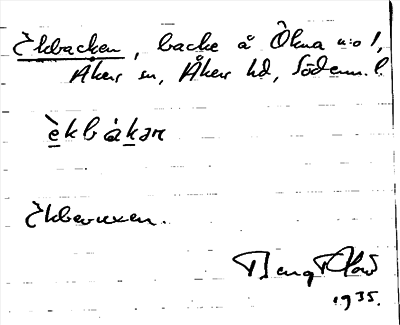 Ekbacken, backe å Ökna n:o 1,
Åkers sn, Åkers hd, Söderm. l.
èkbákan
Ekbacken.
Bengt
1935.